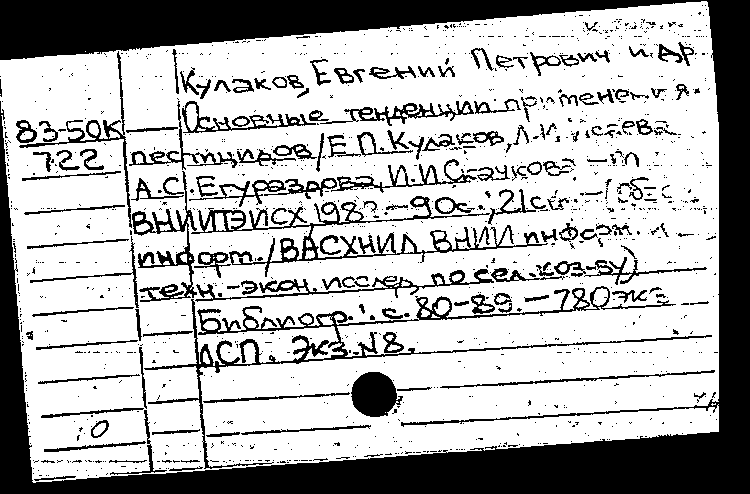 Кулаков, Евгений Петрович и др.
83-50К Основные тенденции применения
722 пестицидов / Е.П. Кулаков, Л.И. Исаева
А.С. Егураздова, И.И. Скачкова. - М
ВНИИТЭИСХ, 198?. - 90с.; 21см. - (Обз
информ. / ВАСХНИЛ, ВНИИ информ. и
техн.-экон. исслед. по сел. хоз-ву)
Библиогр.: с. 80-89. - 780 экз
ДСП. Экз. N8.
0